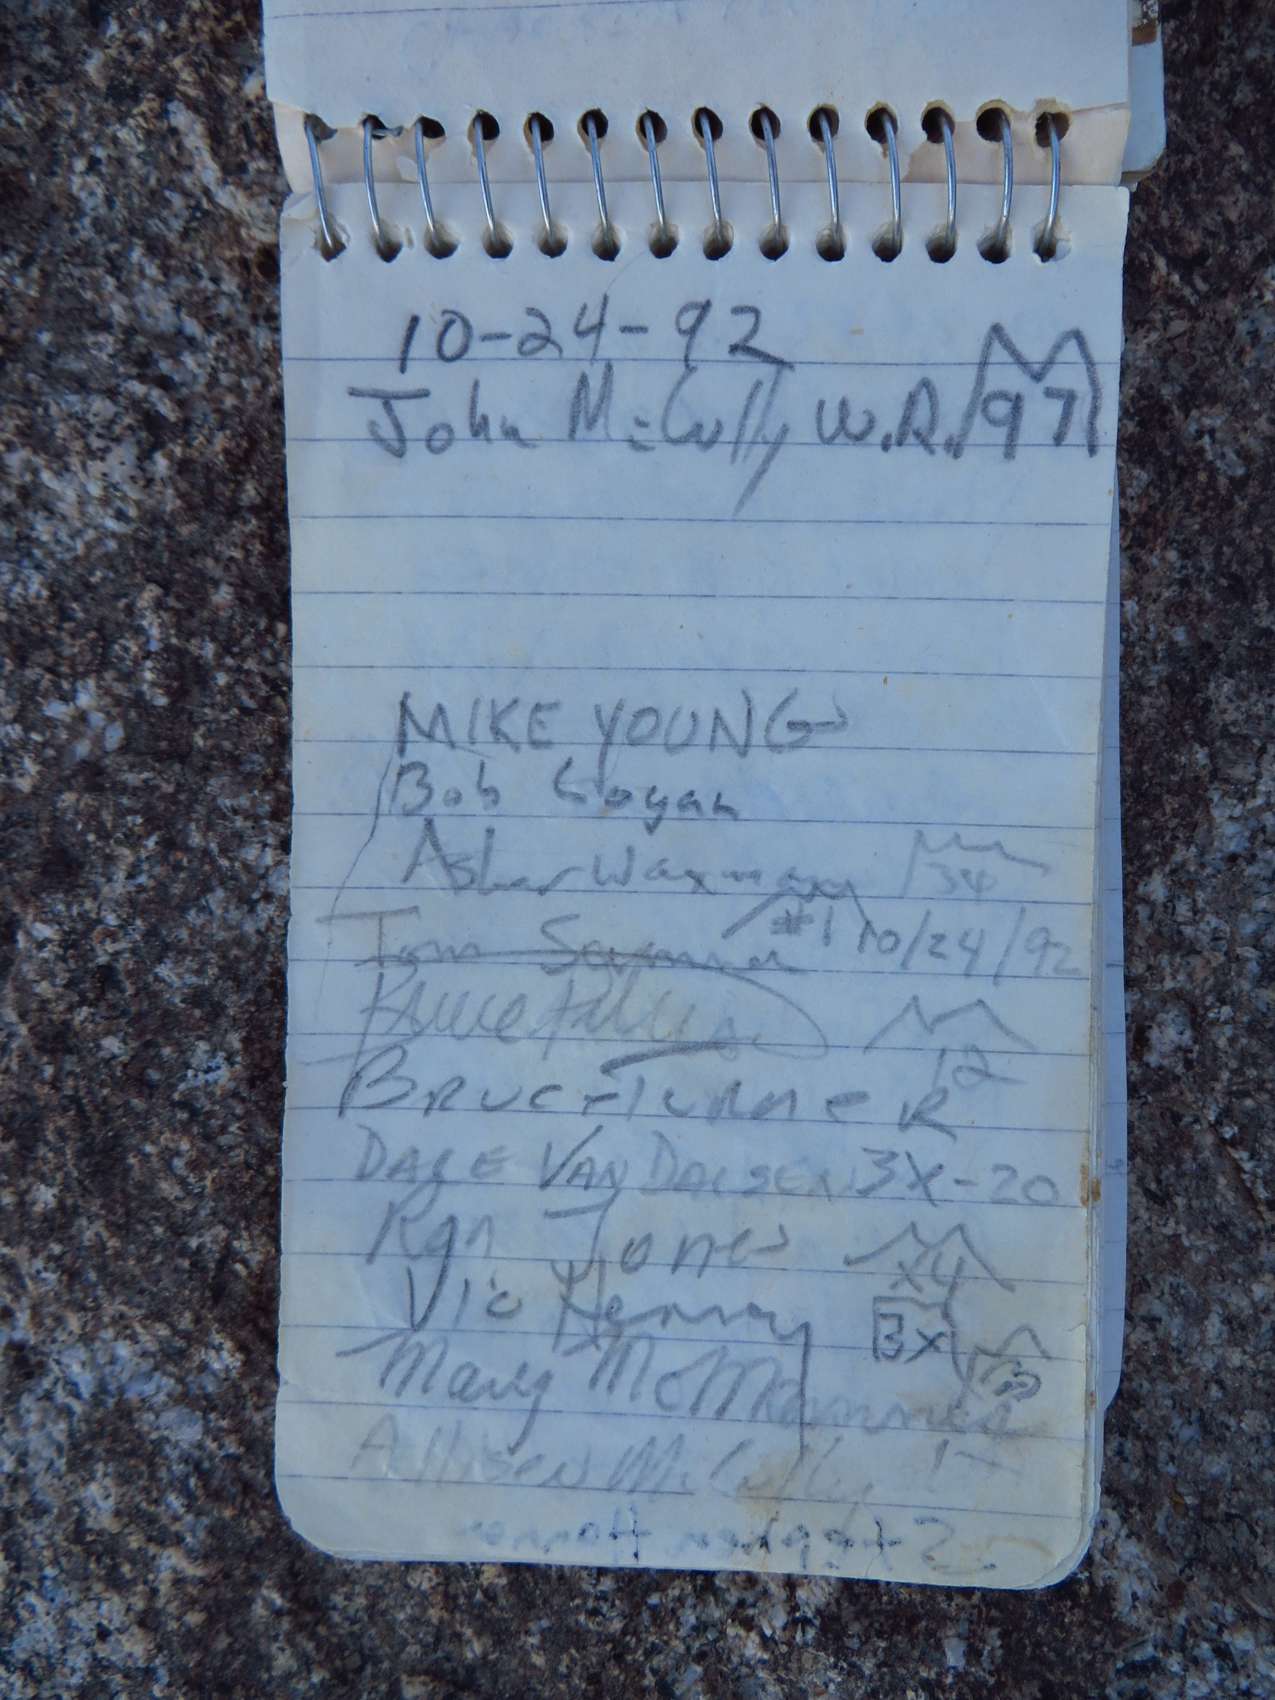 10-24-92
John McCully W.A. 97
MIKE YOUNG
Bob Gogan
Asher Waxman 34
Tom #1 10/24/92
Bruce
12
BRUCE TURNER
DALE VAN DALSEN 3X-20
Ron Jones X4
Vic Henney 3X
Mary McMannes
Allysen McCully 17
Stephen